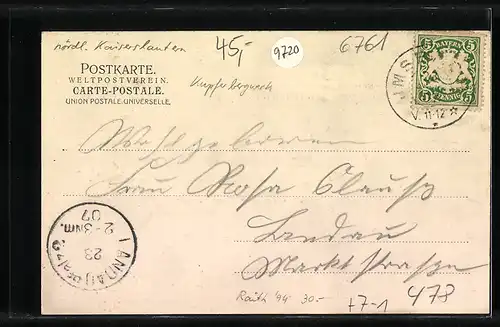 nördl. Kaiserslautern
45,-
9720
6761
POSTKARTE.
WELTPOSTVEREIN.
CARTE-POSTALE.
UNION POSTALE UNIVERSELLE.
Kupferbergwerk
5 BAYERN 5
5 PFENNIG 5
JMS
V. 11-12
Wohlgeboren
Frau Rosa Clauß
Landau
Marktstraße
LANDAU (Pfalz)
23
2-3 Nm.
07
Raith '94 30.-
+7-1 478